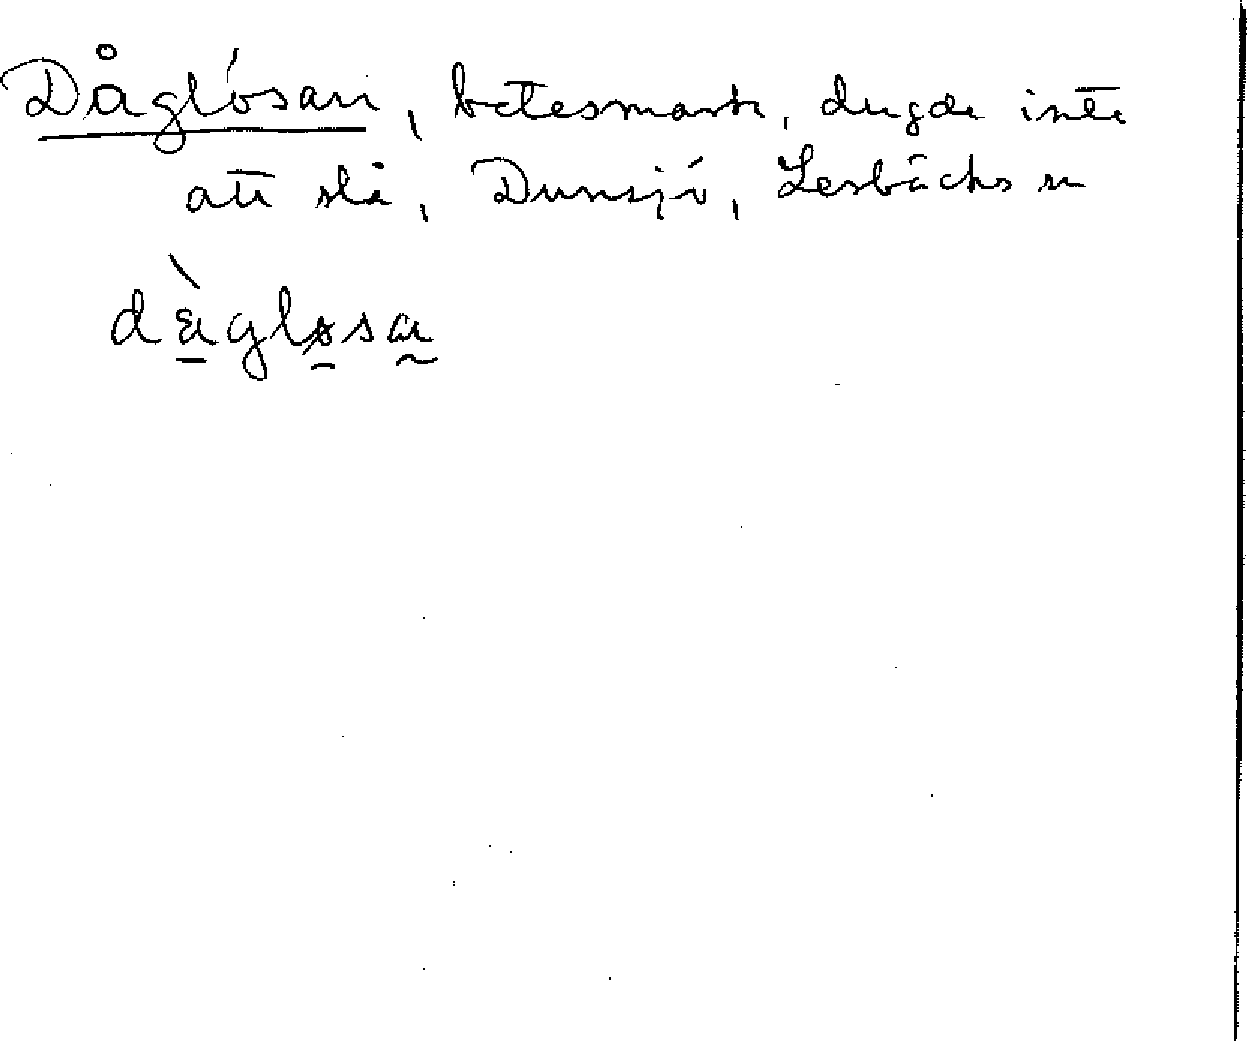 Dåglösan, betesmark, dugde inte
att slå, Dunsjö, Lerbäcks sn
dàgløsa